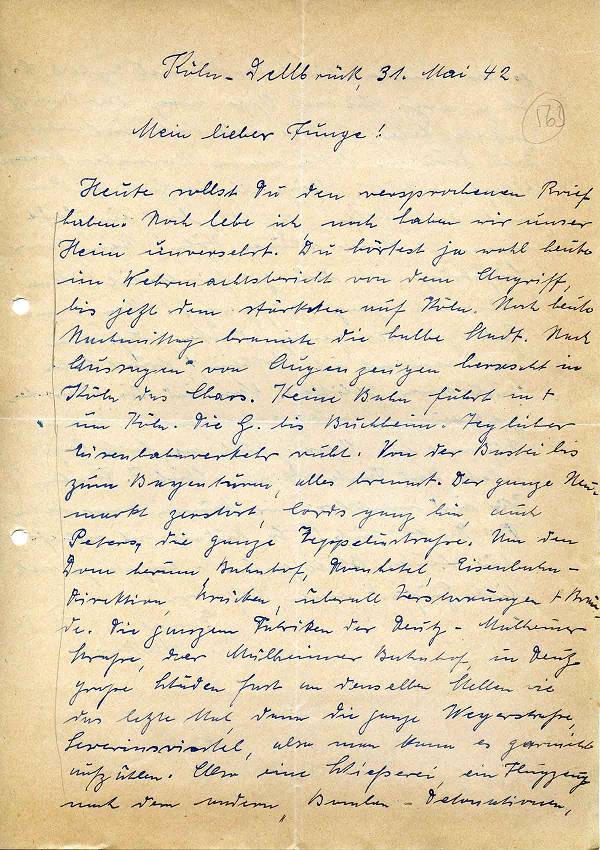 Köln-Dellbrück, 31. Mai 42.
Mein lieber Junge!
Heute sollst Du den versprochenen Brief
haben. Noch lebe ich, noch haben wir unser
Heim unversehrt. Du hörtest ja wohl heute
im Wehrmachtsbericht von dem Angriff,
bis jetzt dem stärksten auf Köln. Noch heute
Nachmittag brannte die halbe Stadt. Nach
Aussagen von Augenzeugen herrscht in
Köln das Chaos. Keine Bahn führt in +
um Köln. Die G. bis Buchheim. Jeglicher
Eisenbahnverkehr ruht. Von der Bastei bis
zum Bayenturm, alles brennt. Der ganze Neu-
markt zerstört, Cords ganz hin, auch
Peters, die ganze Zeppelinstrasse. Um den
Dom herum, Bahnhof, Domhotel, Eisenbahn-
direktion, Brücken, überall Zerstörungen + Brän-
de. Die ganzen Fabriken der Deutz-Mülheimer
Strasse, der Mülheimer Bahnhof, in Deutz
grosse Schäden fast an denselben Stellen wie
das letzte Mal, dann die ganze Weyerstrasse,
Severinsviertel, also man kann es garnicht
aufzählen. Also eine Schiesserei, ein Flugzeug
nach dem andern, Bomben-Detonationen,